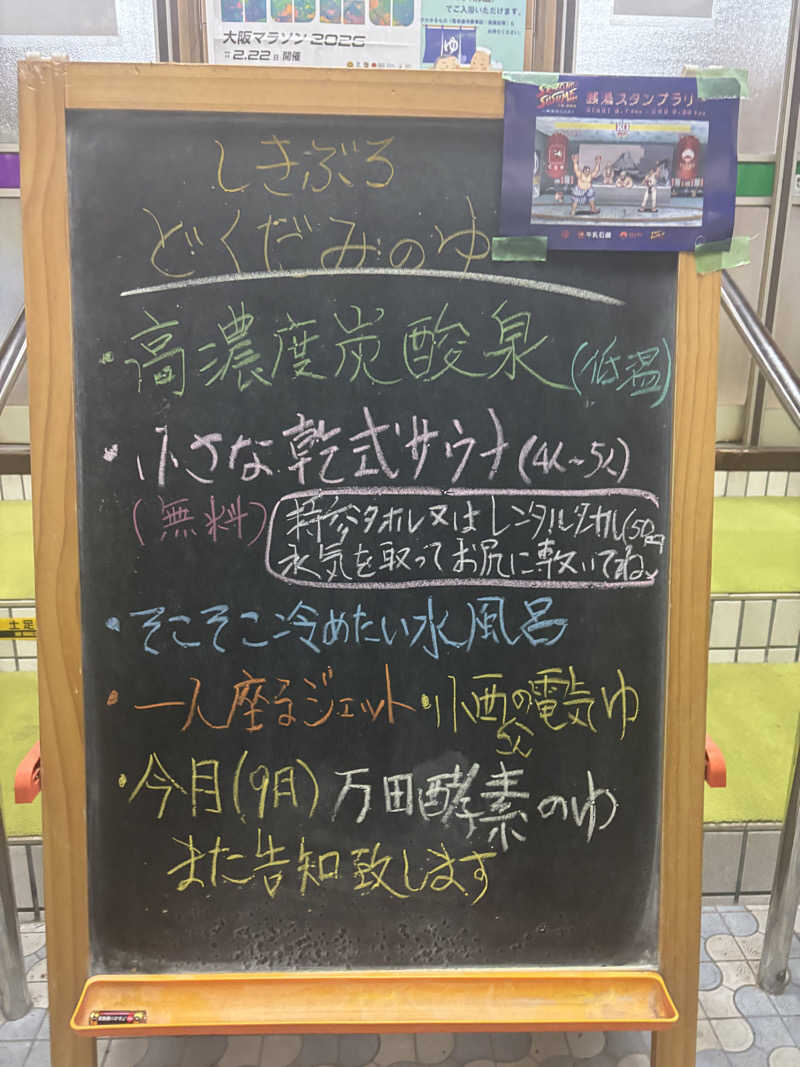 大阪マラソン2026
2.22日 開催
でご入浴いただけます。
ゆ
銭湯スタンプラリー
KO
牛乳石鹸
しきぶろ
どくだみのゆ
・高濃度炭酸泉(低温)
・小さな乾式サウナ(4人〜5人)
(無料)
持参タオル又はレンタルタオル(50円
水気を取ってお尻に敷いてね
・そこそこ冷めたい水風呂
・一人座るジェット・小西の電気ゆ
・今月(9月)万田酵素のゆ
また告知致します
土足